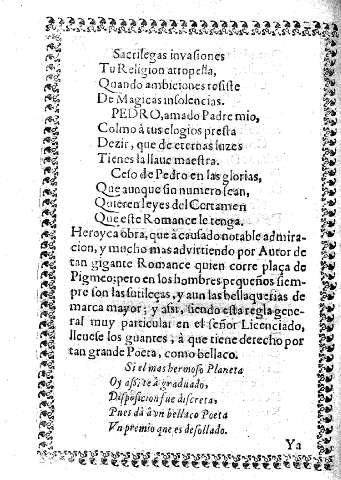 Sacrilegas invasiones
Tu Religion atropella,
Quando ambiciones rosiste
De Magicas insolencias.
PEDRO, amado Padre mio,
Colmo à tus elogios presta
Dezir, que de eternas luzes
Tienes la llave maestra.
Ceso de Pedro en las glorias,
Que aunque sin numero sean,
Quieren leyes del Certamen
Que este Romance le tenga.
Heroyca obra, que à causado notable admira-
cion, y mucho mas advirtiendo por Autor de
tan gigante Romance quien corre plaça de
Pigmeo; pero en los hombres pequeños siem-
pre son las sutileças, y aun las bellaquerias de
marca mayor; y assi, siendo esta regla gene-
ral muy particular en el señor Licenciado,
lleuese los guantes, à que tiene derecho por
tan grande Poeta, como bellaco.
Si el mas hermoso Planeta
Oy assi te à graduado,
Disposicion fue discreta,
Pues dà à vn bellaco Poeta
Vn premio que es desollado.
Ya